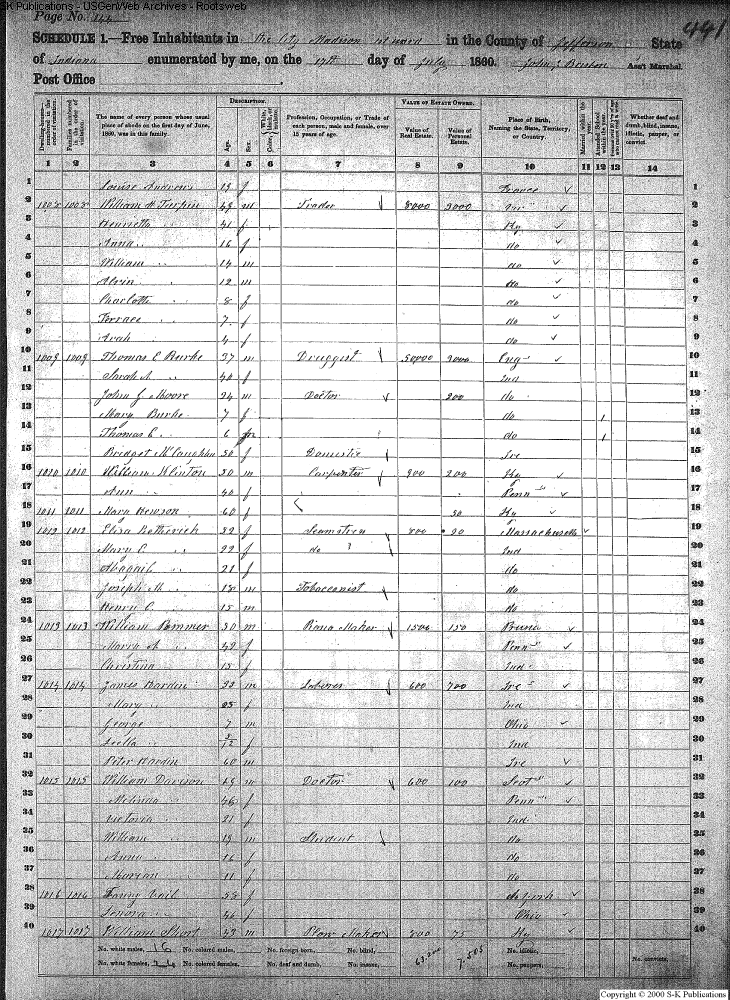 S-K Publications - USGenWeb Archives - Rootsweb
Page No. 144
441
SCHEDULE 1.—Free Inhabitants in the City Madison 1st ward in the County of Jefferson State
of Indiana enumerated by me, on the 17th day of July 1860. John J Ass't Marshal.
Post Office
DESCRIPTION. VALUE OF ESTATE OWNED.
Dwelling-houses—numbered in the order of visitation. Families numbered in the order of visitation. The name of every person whose usual place of abode on the first day of June, 1860, was in this family. Age. Sex. Color, White, black, or mulatto. Profession, Occupation, or Trade of each person, male and female, over 15 years of age. Value of Real Estate. Value of Personal Estate. Place of Birth, Naming the State, Territory, or Country. Married within the year. Attended School within the year. Whether deaf and dumb, blind, insane, idiotic, pauper, or convict.
1 2 3 4 5 6 7 8 9 10 11 12 13 14
1 Louise Andrews 19 f France 1
2 1008 1008 William H Turpin 49 m Trader 8000 3000 2
3 Henrietta " 41 f Ky 3
4 Anna " 16 f do 4
5 William " 14 m do 5
6 Alvin " 12 m do 6
7 Charlotte " 8 f do 7
8 " 7 f do 8
9 " 4 f do 9
10 1009 1009 Thomas C Burke 37 m Druggist 50000 3000 Eng 10
11 Sarah A " 40 f Ind 11
12 John J Moore 24 m Doctor 200 do 12
13 Mary Burke 7 f do 1 13
14 Thomas C " 6 m do 1 14
15 Bridget McLaughlin 30 f Domestic Ire 15
16 1010 1010 William Minton 50 m Carpenter 900 200 Ky 16
17 Ann " 40 f Penn 17
18 1011 1011 Mary Hewson 60 f 50 Ky 18
19 1012 1012 Eliza 52 f Seamstress 800 20 Massachusetts 19
20 Mary C " 22 f do Ind 20
21 Abagail " 21 f do 21
22 Joseph M " 18 m Tobacconist do 22
23 Henry C " 15 m do 23
24 1013 1013 William Pommer 50 m Piano Maker 1500 150 Prussia 24
25 Marry A " 49 f Penn 25
26 Christina " 15 f Ind 26
27 1014 1014 James Hardin 33 m Laborer 600 700 Ire 27
28 Mary " 25 f Ind 28
29 George " 7 m Ohio 29
30 Luella " f Ind 30
31 Peter Hardin 60 m Ire 31
32 1015 1015 William Davison 48 m Doctor 600 100 Scot 32
33 Melinda " 46 f Penn 33
34 Victoria " 21 f Ind 34
35 William " 19 m Student do 25
36 Anna " 16 f do 26
37 Marian " 11 f do 37
38 1016 1016 Fanny Vail 58 f 38
39 Lenora " 46 f Ohio 39
40 1017 1017 William Short 43 m Plow Maker 800 75 Ky 40
No. white males, 16 No. colored males, No. foreign born, No. blind, No. idiotic,
No. white females, 24 No. colored females, No. deaf and dumb, No. insane, 7,505 No. paupers, No. convicts,
Copyright © 2000 S-K Publications